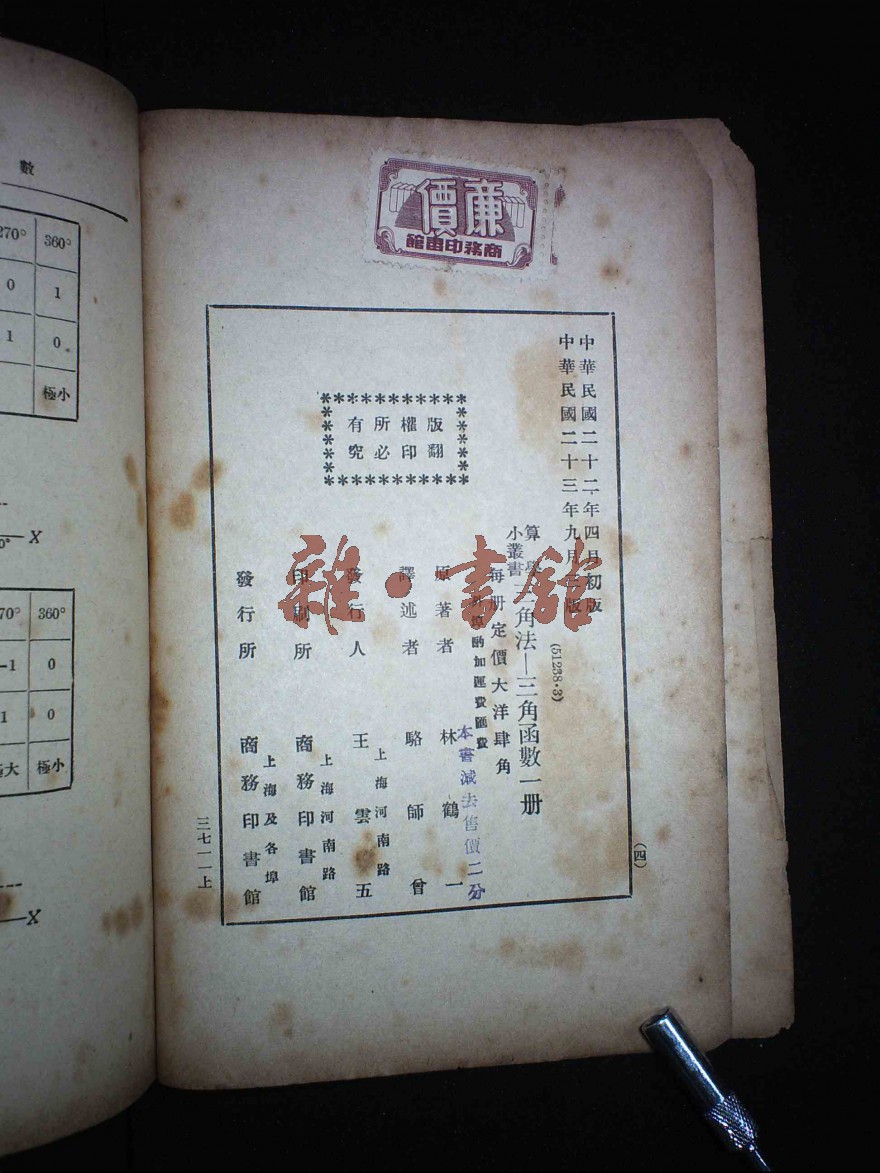 數
270° 360°
0 1
1 0
極小
X
0°
70° 360°
-1 0
1 0
極大 極小
X
廉價
商務印書館
中華民國二十二年四月初版
中華民國二十三年九月三版
(51238·3)
算學小叢書
三角法—三角函數一册
每册定價大洋肆角
外埠酌加運費匯費
本書減去售價二分
原著者 林鶴一
譯述者 駱師曾
發行人 王雲五
上海河南路
印刷所 商務印書館
上海河南路
發行所 商務印書館
上海及各埠
版權所有
翻印必究
(四)
三七一一上
雜·書館